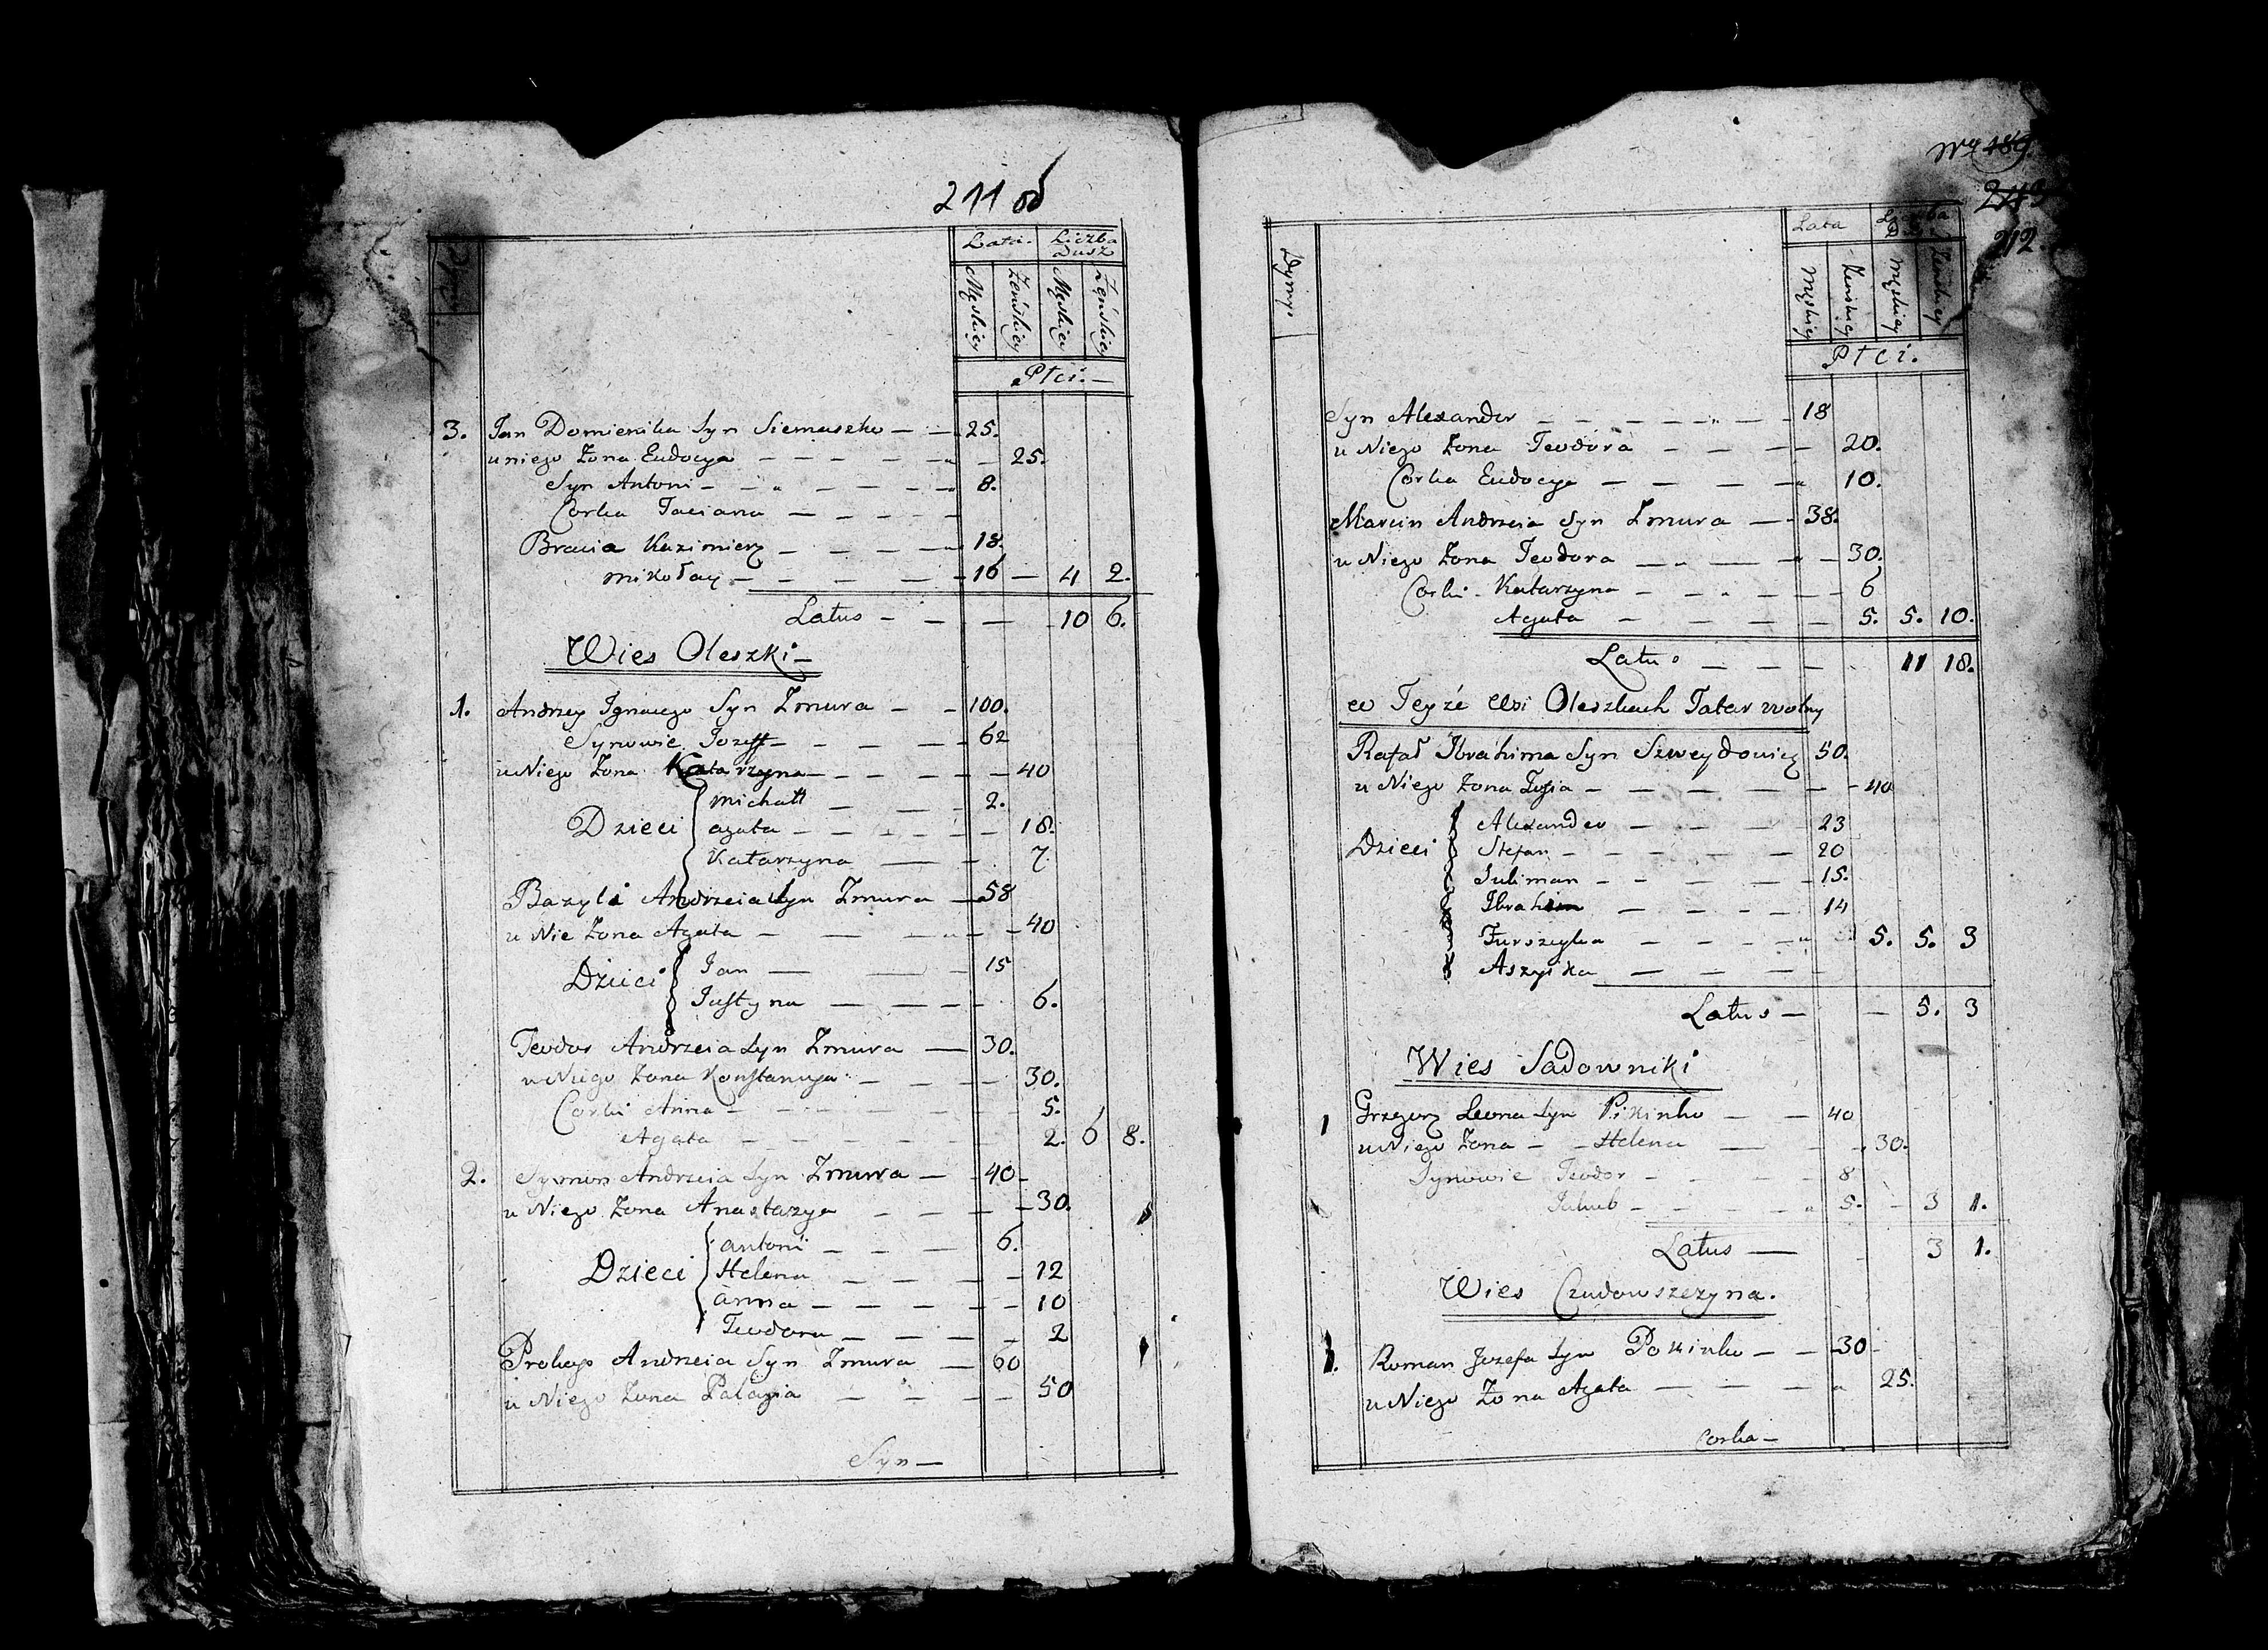 211 об
Lata. Liczba Dusz
Męskiey Żeńskiey Męskiey Żeńskiey
Płci.—
3. Jan Dominika Syn Siemaszko — — 25.
u niego Żona Eudocya — — — — — 25.
Syn Antoni — — — — — — 8.
Corka Taciana — — — — —
Bracia Kazimierz — — — — 18.
Mikołay — — — — — 16 — 4 2.
Latus — — — 10 6.
Wies Oleszki —
1. Andrzey Ignacego Syn Zmura — — 100.
Synowie Jozeff — — — — — 62
u Niego Żona Katarzyna — — — — — 40
Michałł — — — 2.
Dzieci Agata — — — — — — 18.
Katarzyna — — 7.
Bazyli Andrzeia Syn Zmura — 58
u Nie Żona Agata — — — — — 40
Dzieci Jan — — — 15
Justyna — — — — 6.
Teodor Andrzeia Syn Zmura — 30.
u Niego Żona Konstancya — — — — 30.
Corki Anna — — — — — — 5.
Agata — — — — — — 2. 6 8.
2. Symon Andrzeia Syn Zmura — 40 —
u Niego Żona Anastazya — — — — 30.
Antoni — — — 6.
Dzieci Helena — — — — 12
Anna — — — — — — 10
Teodora — — — — 2
Prokop Andrzeia Syn Zmura — 60
u Niego Żona Palagia — — — — 50
Syn —
189.
243
212.
Dymy.
Lata Liczba
Męskiey Żeńskiey Męskiey Żeńskiey
Płci.
Syn Alexander — — — — — — — 18
u Niego Żona Teodora — — — — 20.
Corka Eudocya — — — — — 10.
Marcin Andrzeia Syn Zmura — — 38.
u Niego Żona Teodora — — — — — 30.
Corki Katarzyna — — — — — — 6
Agata — — — — — 5. 5. 10.
Latus — — — — 11 18.
w Teyże Wsi Oleszkach Tatar wolny
Rafał Ibrahima Syn Szweydowicz 50.
u Niego Żona Zofia — — — — — — 40
Alexander — — — — 23
Dzieci Stefan — — — — — 20
Suliman — — — — — 15.
Ibrahim — — — — 14
Furszeyka — — — — 5. 5. 3
Aszyika — — — —
Latus — — 5. 3
Wies Sadowniki
1 Grzegorz Leona Syn Pikinko — — 40
u Niego Żona — — Helena — — 30.
Synowie Teodor — — — — — 8
Jakub — — — — — 5. — 3 1.
Latus — 3 1.
Wies Czudowszczyna.
1. Roman Jozefa Syn Pokinko — — 30 —
u Niego Żona Agata — — — — 25.
Corka —